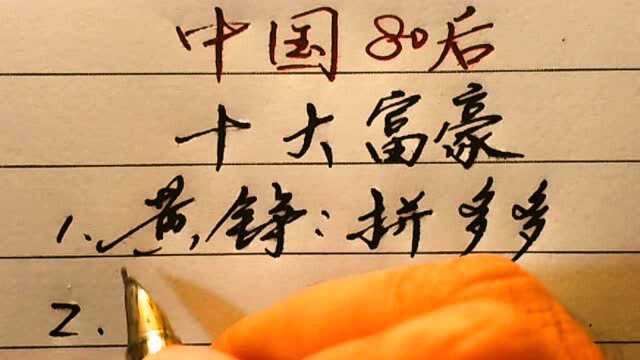 中国80后
十大富豪
1、黄铮：拼多多
2.